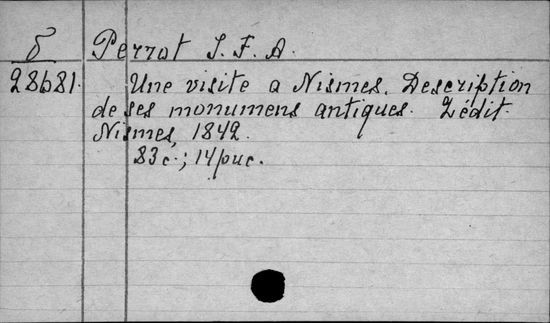 б
28681.
Perrot J. F. A.
Une visite a Nismes. Description
de ses monumens antiques. 2 édit.
Nismes, 1842.
83 c.; 14 рис.